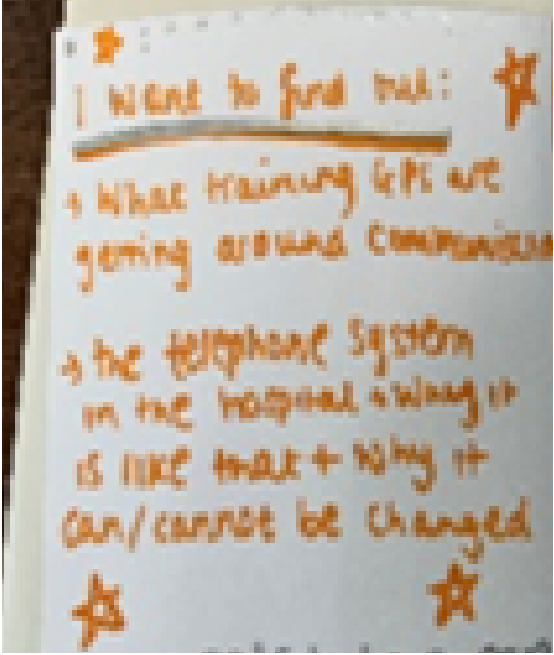 I want to find out:
→ What training GPs are
getting around communication
→ the telephone system
in the hospital + why it
is like that + why it
can/cannot be changed